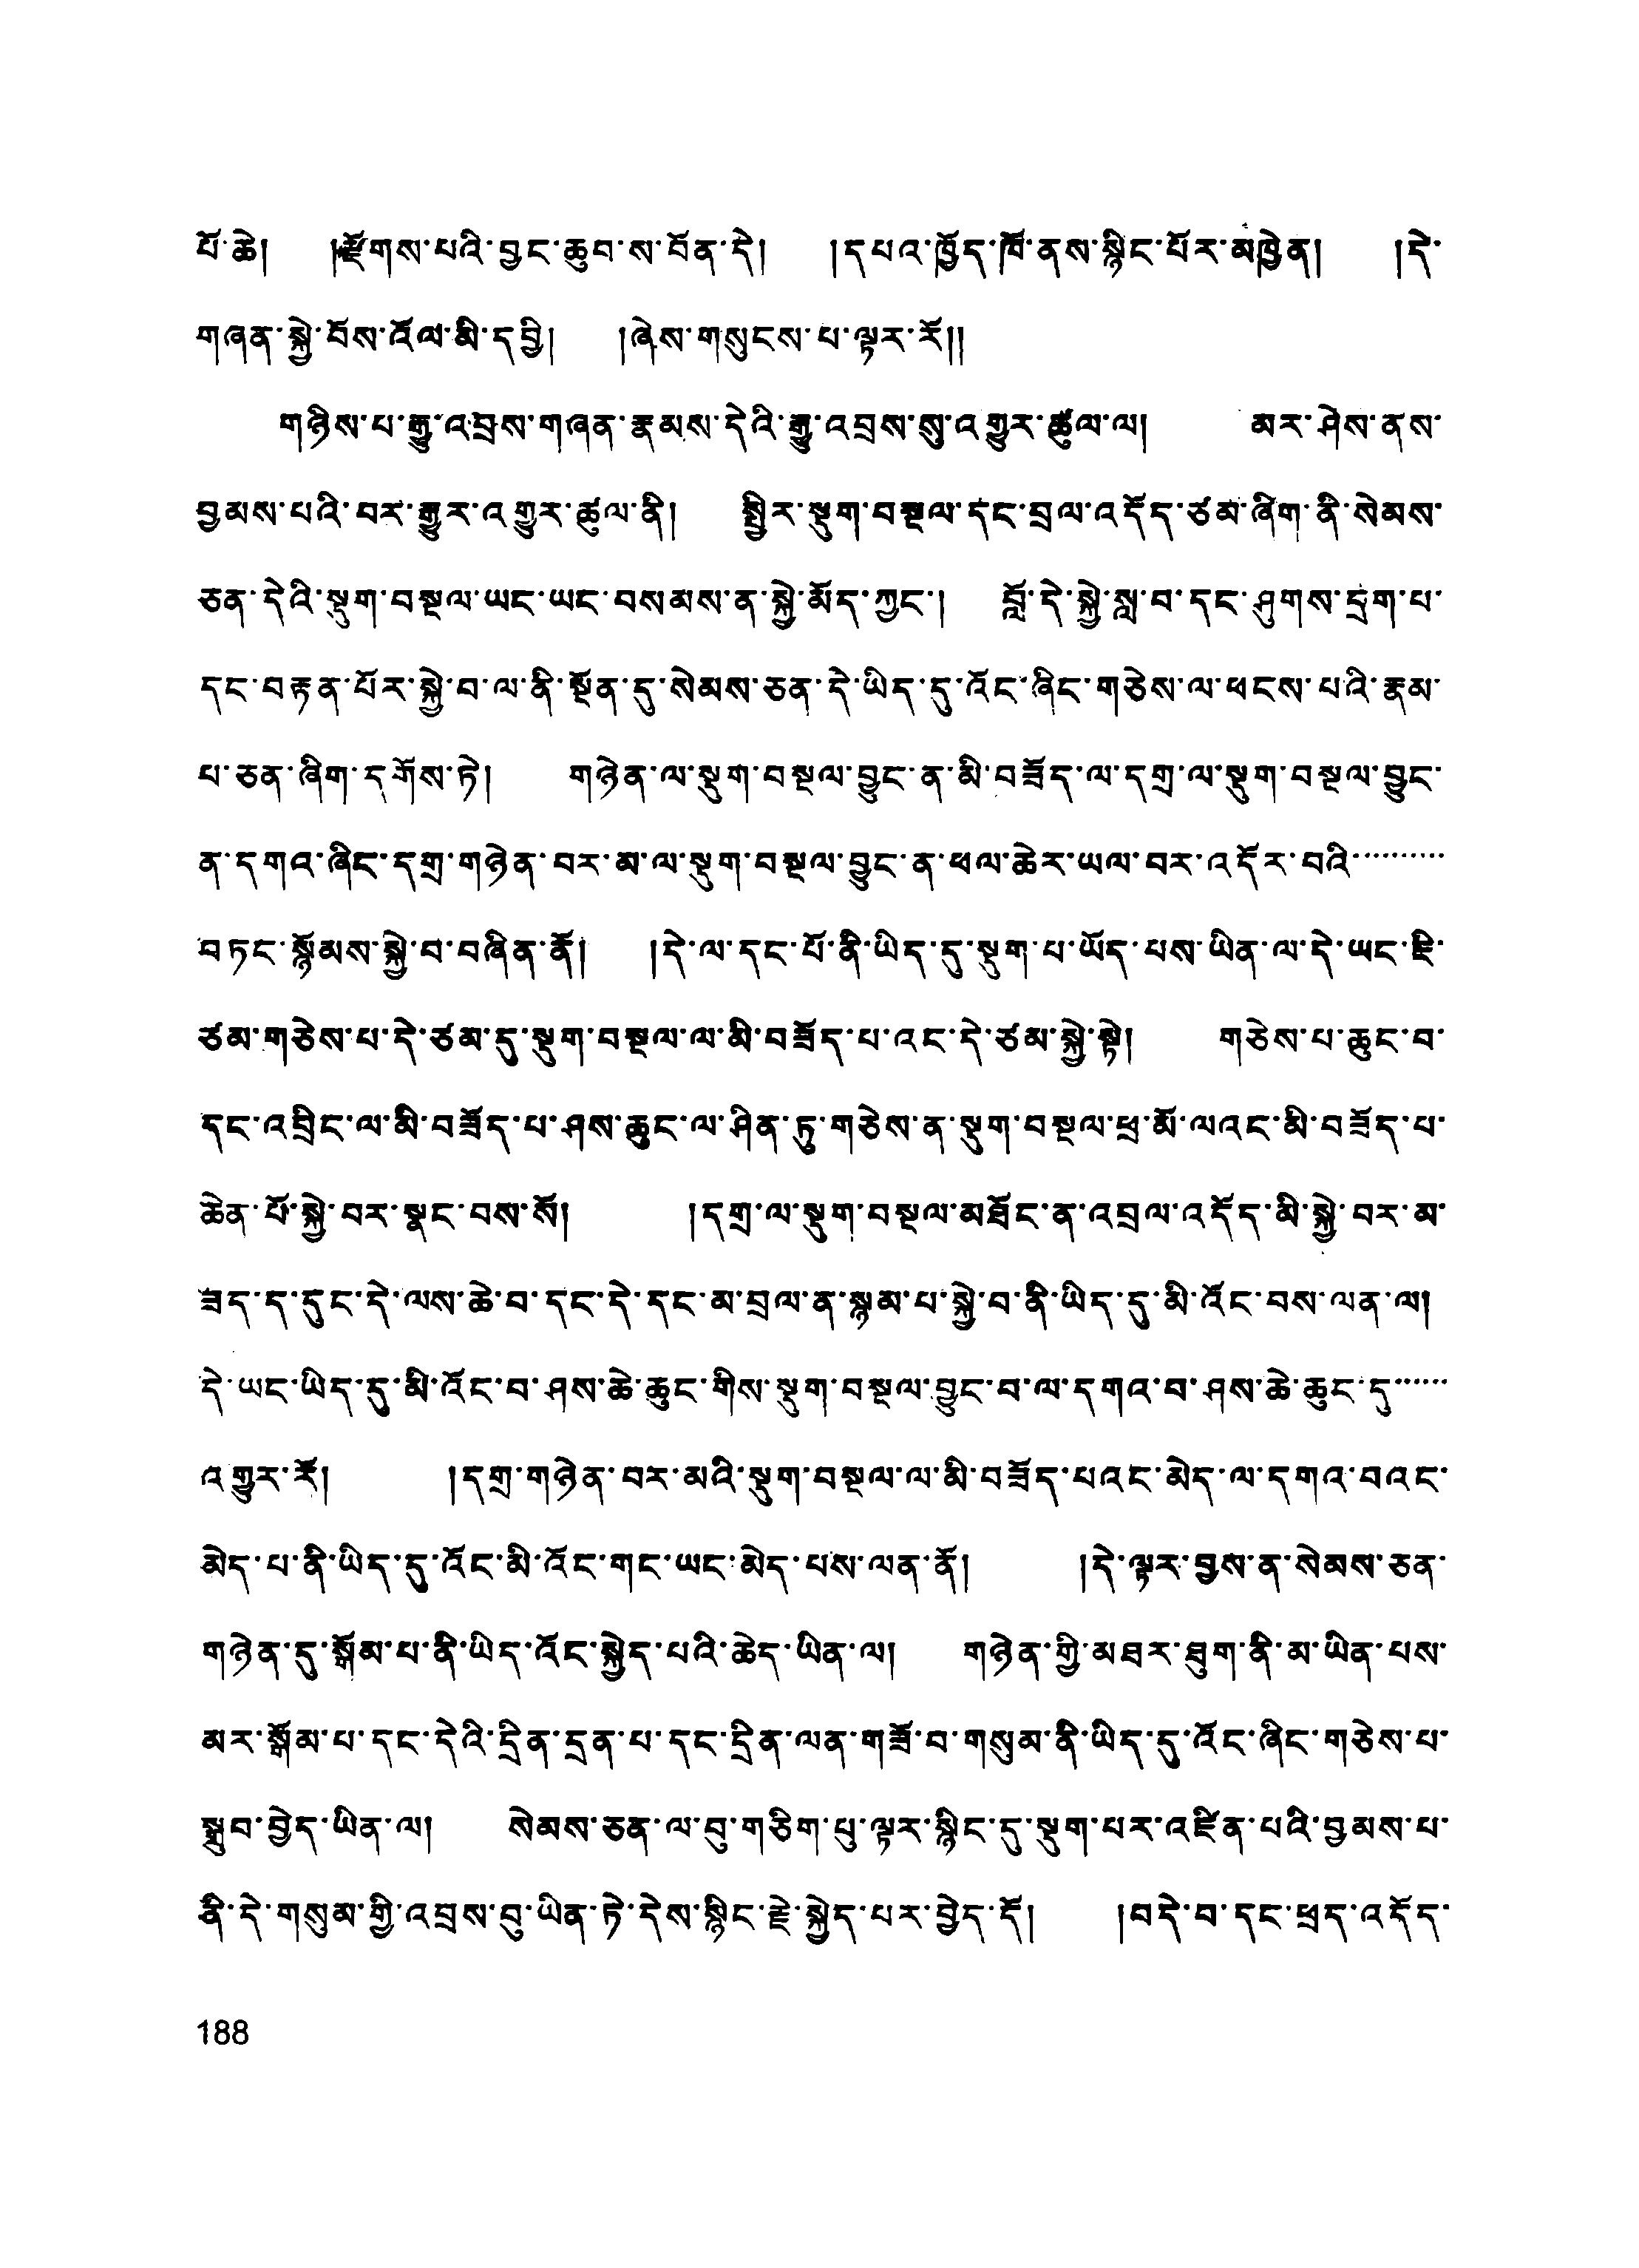 པོ་ཆེ། །རྫོགས་པའི་བྱང་ཆུབ་ས་བོན་དེ། །དཔའ་ཁྱོད་ཁོ་ནས་སྙིང་པོར་མཁྱེན། །དེ་
གཞན་སྐྱེ་བོས་འོལ་མི་དབྱི། །ཞེས་གསུངས་པ་ལྟར་རོ།།
གཉིས་པ་རྒྱུ་འབྲས་གཞན་རྣམས་དེའི་རྒྱུ་འབྲས་སུ་འགྱུར་ཚུལ་ལ། མར་ཤེས་ནས་
བྱམས་པའི་བར་རྒྱུར་འགྱུར་ཚུལ་ནི། སྤྱིར་སྡུག་བསྔལ་དང་བྲལ་འདོད་ཙམ་ཞིག་ནི་སེམས་
ཅན་དེའི་སྡུག་བསྔལ་ཡང་ཡང་བསམས་ན་སྐྱེ་མོད་ཀྱང་། བློ་དེ་སྐྱེ་སླ་བ་དང་ཤུགས་དྲག་པ་
དང་བརྟན་པོར་སྐྱེ་བ་ལ་ནི་སྔོན་དུ་སེམས་ཅན་དེ་ཡིད་དུ་འོང་ཞིང་གཅེས་ལ་ཕངས་པའི་རྣམ་
པ་ཅན་ཞིག་དགོས་ཏེ། གཉེན་ལ་སྡུག་བསྔལ་བྱུང་ན་མི་བཟོད་ལ་དགྲ་ལ་སྡུག་བསྔལ་བྱུང་
ན་དགའ་ཞིང་དགྲ་གཉེན་བར་མ་ལ་སྡུག་བསྔལ་བྱུང་ན་ཕལ་ཆེར་ཡལ་བར་འདོར་བའི་་་་་་་་་་
བཏང་སྙོམས་སྐྱེ་བ་བཞིན་ནོ། །དེ་ལ་དང་པོ་ནི་ཡིད་དུ་སྡུག་པ་ཡོད་པས་ཡིན་ལ་དེ་ཡང་ཇི་
ཙམ་གཅེས་པ་དེ་ཙམ་དུ་སྡུག་བསྔལ་ལ་མི་བཟོད་པ་འང་དེ་ཙམ་སྐྱེ་སྟེ། གཅེས་པ་ཆུང་བ་
དང་འབྲིང་ལ་མི་བཟོད་པ་ཤས་ཆུང་ལ་ཤིན་ཏུ་གཅེས་ན་སྡུག་བསྔལ་ཕྲ་མོ་ལའང་མི་བཟོད་པ་
ཆེན་པོ་སྐྱེ་བར་སྣང་བས་སོ། །དགྲ་ལ་སྡུག་བསྔལ་མཐོང་ན་འབྲལ་འདོད་མི་སྐྱེ་བར་མ་
ཟད་ད་དུང་དེ་ལས་ཆེ་བ་དང་དེ་དང་མ་བྲལ་ན་སྙམ་པ་སྐྱེ་བ་ནི་ཡིད་དུ་མི་འོང་བས་ལན་ལ།
དེ་ཡང་ཡིད་དུ་མི་འོང་བ་ཤས་ཆེ་ཆུང་གིས་སྡུག་བསྔལ་བྱུང་བ་ལ་དགའ་བ་ཤས་ཆེ་ཆུང་དུ་་་་་་
འགྱུར་རོ། །དགྲ་གཉེན་བར་མའི་སྡུག་བསྔལ་ལ་མི་བཟོད་པའང་མེད་ལ་དགའ་བའང་
མེད་པ་ནི་ཡིད་དུ་འོང་མི་འོང་གང་ཡང་མེད་པས་ལན་ནོ། །དེ་ལྟར་བྱས་ན་སེམས་ཅན་
གཉེན་དུ་སྒོམ་པ་ནི་ཡིད་འོང་སྐྱེད་པའི་ཆེད་ཡིན་ལ། གཉེན་གྱི་མཐར་ཐུག་ནི་མ་ཡིན་པས་
མར་སྒོམ་པ་དང་དེའི་དྲིན་དྲན་པ་དང་དྲིན་ལན་གཟོ་བ་གསུམ་ནི་ཡིད་དུ་འོང་ཞིང་གཅེས་པ་
སྒྲུབ་བྱེད་ཡིན་ལ། སེམས་ཅན་ལ་བུ་གཅིག་པུ་ལྟར་སྙིང་དུ་སྡུག་པར་འཛིན་པའི་བྱམས་པ་
ནི་དེ་གསུམ་གྱི་འབྲས་བུ་ཡིན་ཏེ་དེས་སྙིང་རྗེ་སྐྱེད་པར་བྱེད་དོ། །བདེ་བ་དང་ཕྲད་འདོད་
188